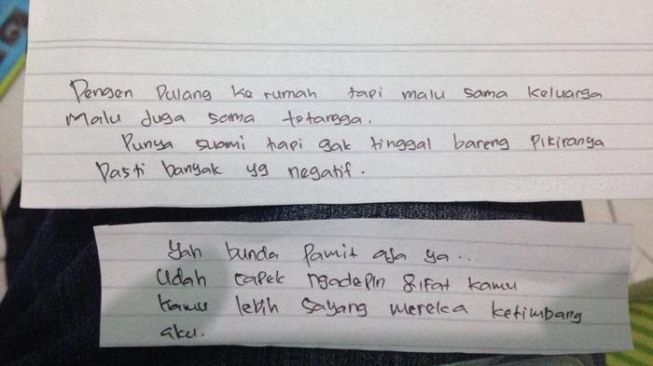 Pengen Pulang ke rumah tapi malu sama keluarga
Malu Juga sama tetangga.
Punya suami tapi gak tinggal bareng Pikiranya
Pasti banyak yg negatif.
Yah bunda Pamit aja ya..
Udah capek ngadepin sifat kamu
Kamu lebih sayang mereka ketimbang
aku.